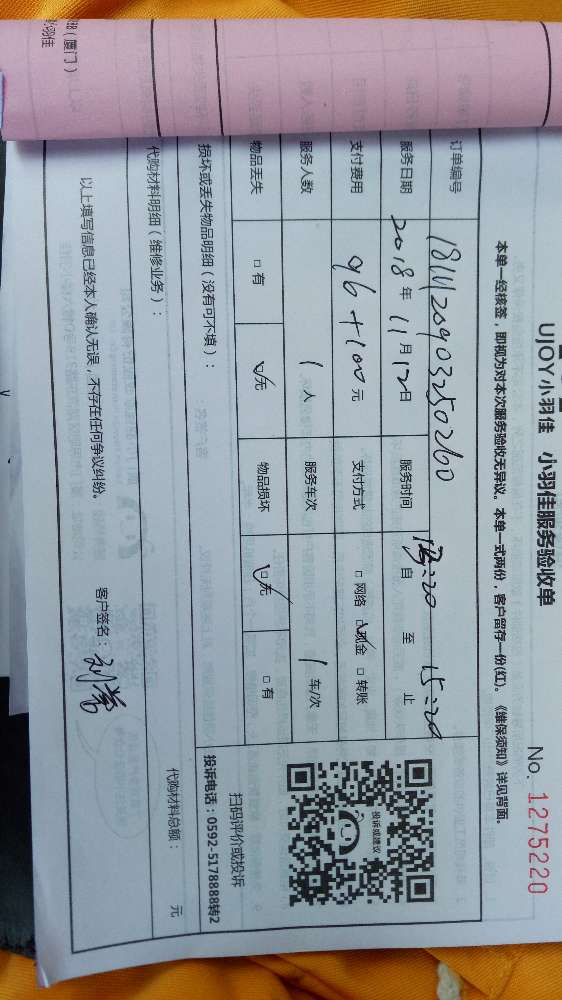 UJOY小羽佳 小羽佳服务验收单
No. 1275220
本单一经核签，即视为对本次服务验收无异议。本单一式两份，客户留存一份(红)。《维保须知》详见背面。
订单编号 1811120903250260
服务日期 2018年11月12日 服务时间 自 至 15:20 止
支付费用 96+100元 支付方式 □网络 □现金 □转账
服务人数 1人 服务车次 1车/次
物品丢失 □有 □无 物品损坏 □无 □有
投诉或建议
扫码评价或投诉
投诉电话：0592-5178888转2
损坏或丢失物品明细（没有可不填）：
代购材料明细（维修业务）： 代购材料总额： 元
以上填写信息已经本人确认无误，不存在任何争议纠纷。 客户签名：
（厦门）
羽佳